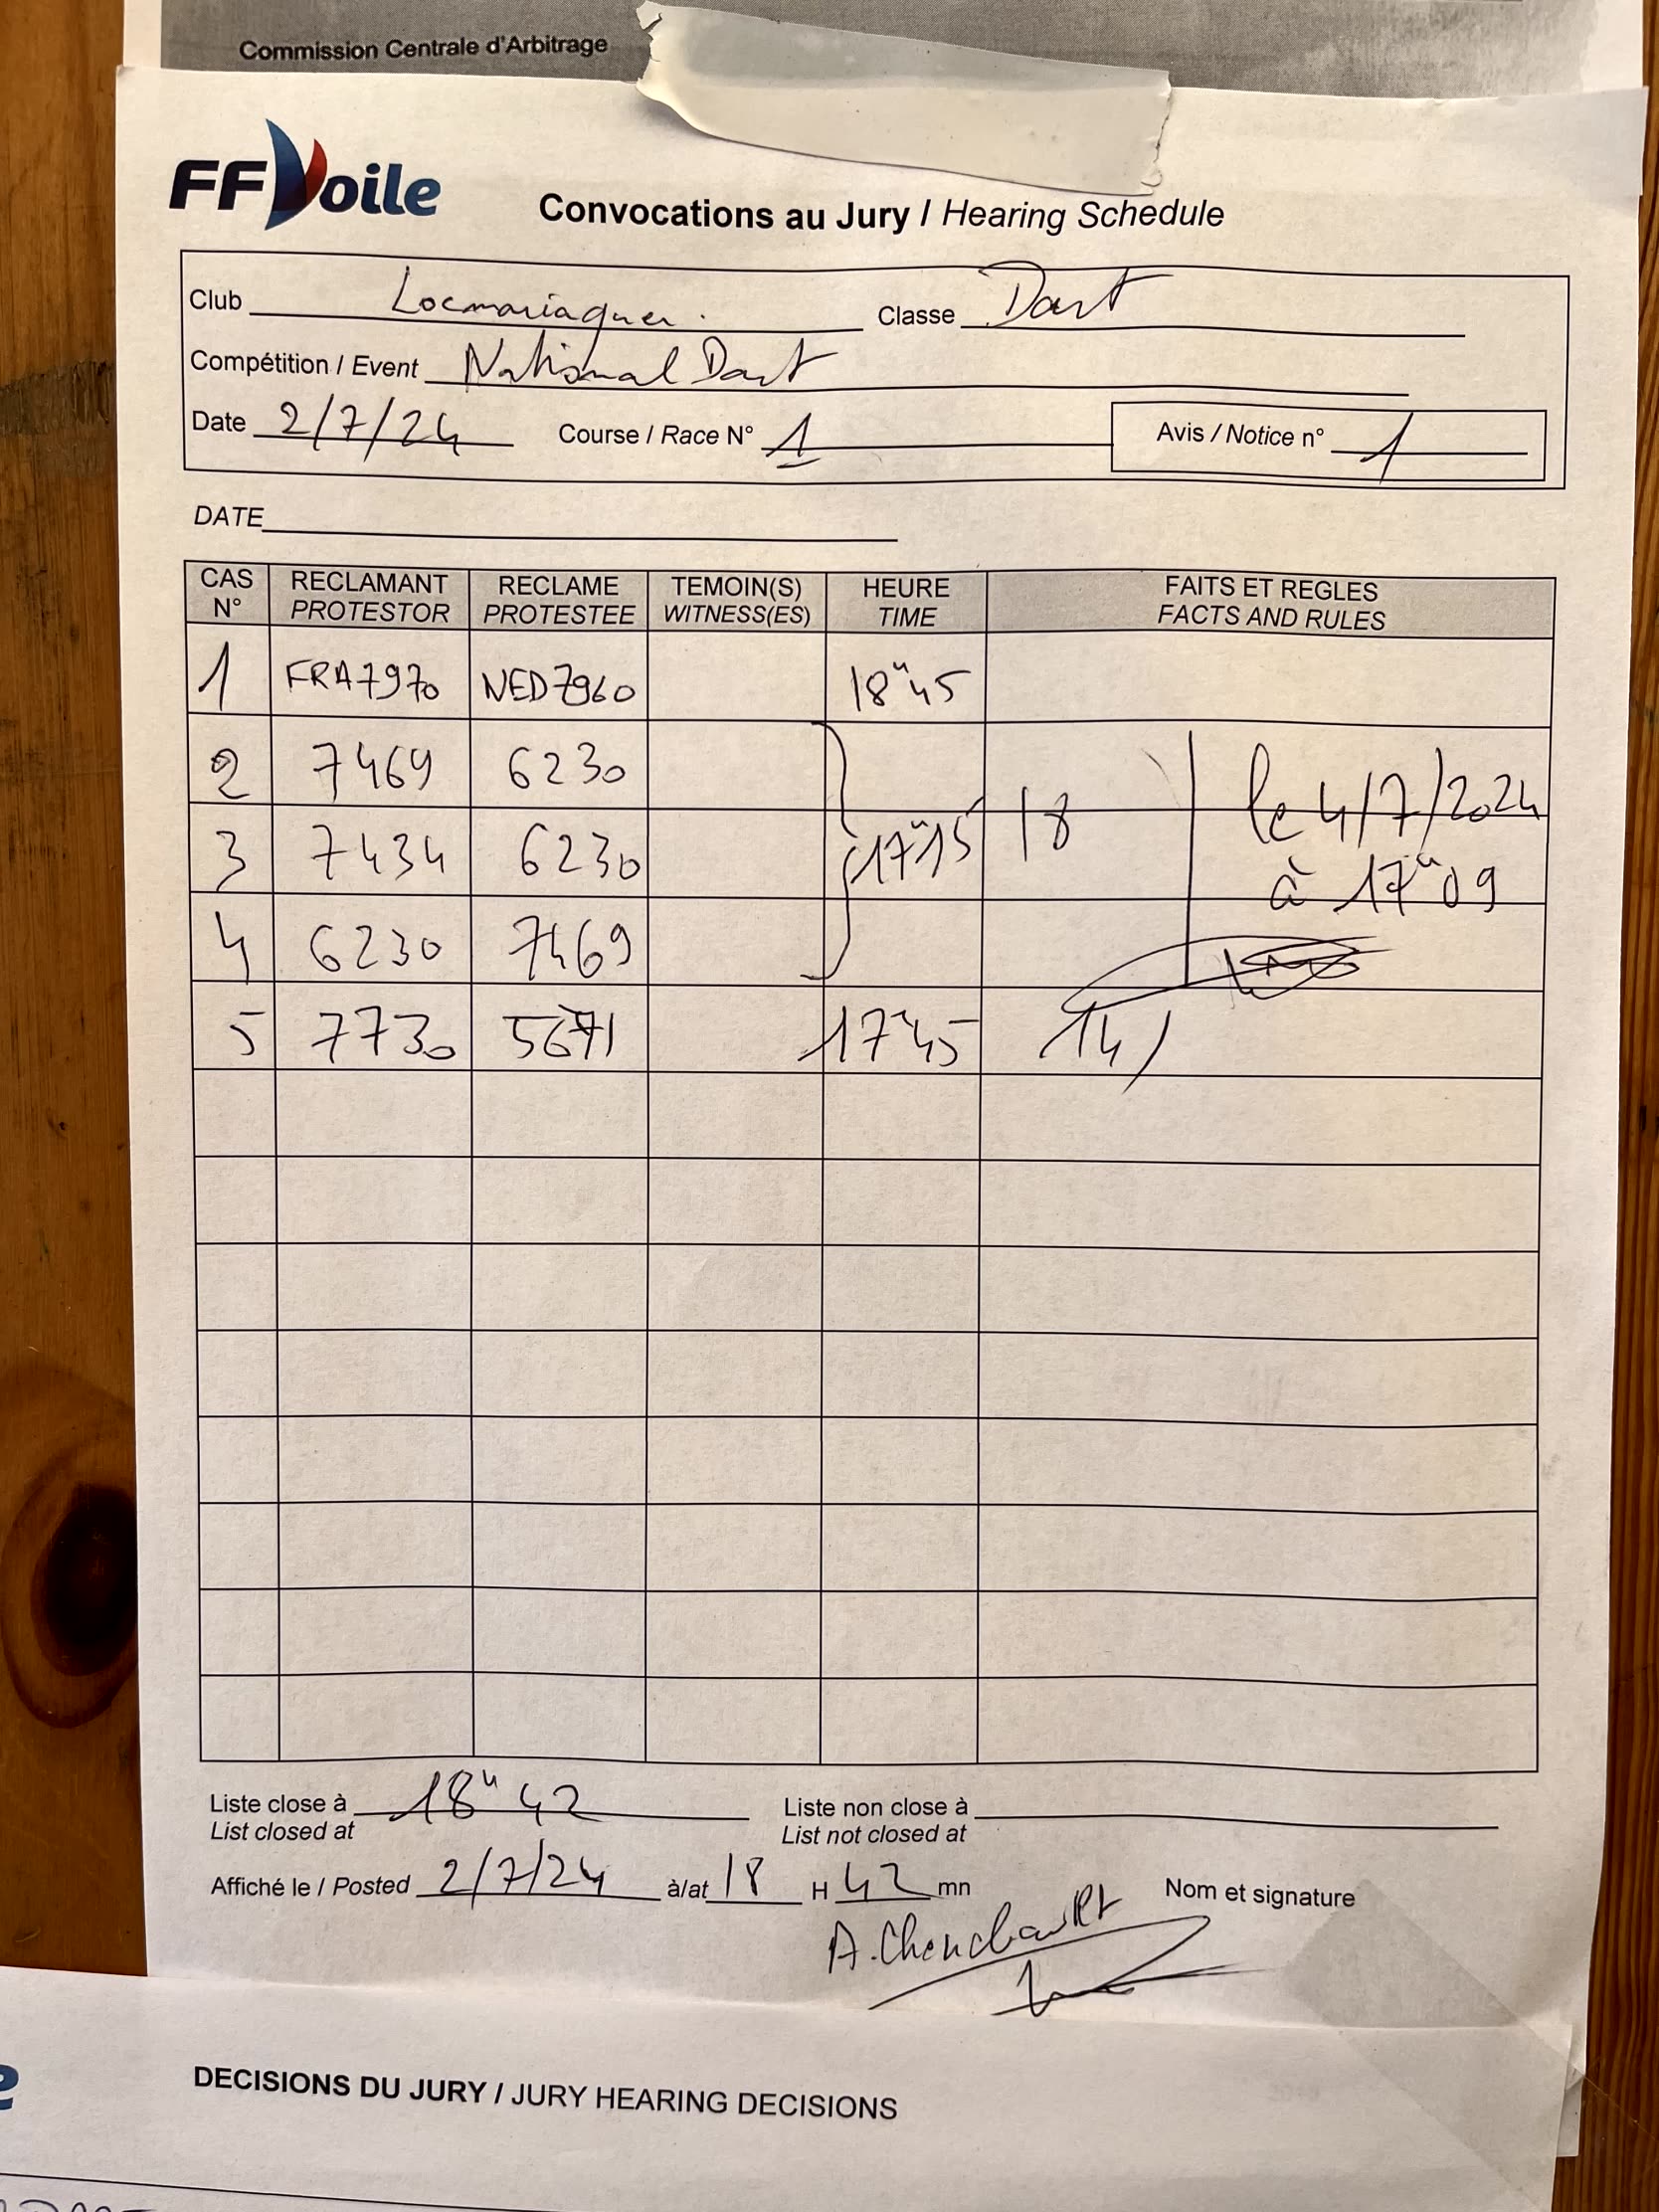 Commission Centrale d'Arbitrage
FFVoile
Convocations au Jury / Hearing Schedule
Club Locmariaquer. Classe Dart
Compétition / Event National Dart
Date 2/7/24 Course / Race N° 1 Avis / Notice n° 1
DATE
CAS N° RECLAMANT PROTESTOR RECLAME PROTESTEE TEMOIN(S) WITNESS(ES) HEURE TIME FAITS ET REGLES FACTS AND RULES
1 FRA7970 NED7960 18h45
2 7469 6230
le 4/7/2024
3 7434 6230 17h15 18
à 17h09
4 6230 7469
5 7730 17h45 14
Liste close à 18h42 Liste non close à
List closed at List not closed at
Affiché le / Posted 2/7/24 à/at 18 H 42 mn Nom et signature
DECISIONS DU JURY / JURY HEARING DECISIONS